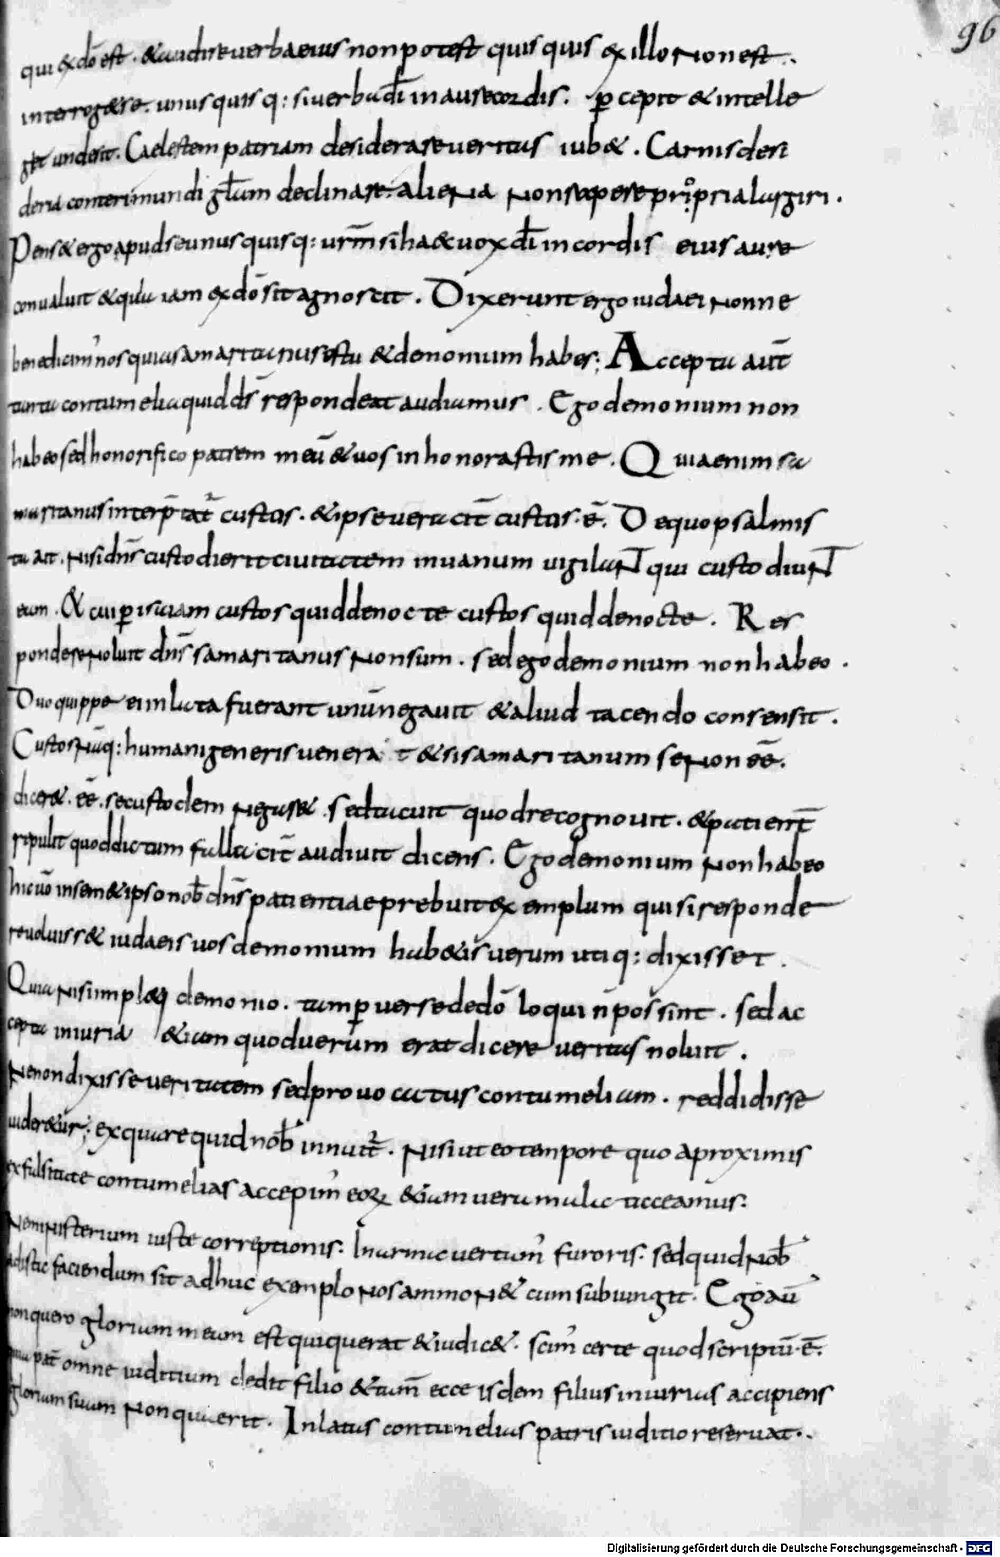 96
qui & do̅ est . & audire uerba eius non potest quisquis & illo non est .
interrog& se . unusquisq: si uerba di̅ in aure cordis . ꝑcepit & intelle
g& unde sit . Caelestem patriam desiderare ueritas iub& . Carnis desi
deria conteri mundi gl̅am declinare . aliena non appetere propria largiri .
Pens& ergo apud se unusquisq: ur̅m si haec uox di̅ in cordis eius aure
conualuit & quia iam ex do̅ sit agnoscit . Dixerunt ergo iudaei nonne
benedicim' nos quia samaritanus es tu & demonium habes ; Accepta aut̅
tanta contumelia quid ds̅ respondeat audiamus . Ego demonium non
habeo sed honorifico patrem meu̅ & uos inhonorastis me . Quia enim sa
maritanus interp̅tat' custos . & ipse ueracit̅ custos . e̅ . De quo psalmis
ta ait . Nisi dn̅s custodierit ciuitatem in uanum uigilant qui custodiunt
eam . & cui ꝑ isaiam custos quid de nocte custos quid de nocte . Res
pondere noluit dn̅s samaritanus non sum . sed ego demonium non habeo .
Duo quippe ei inlata fuerant unu̅ negauit & aliud tacendo consensit .
Custos na̅q: humani generis uenerat & si samaritanum se non ee̅ .
dicer& . ee̅ . se custodem negass& . sed tacuit quod recognouit . & patient̅
repulit quod dictum fallacit̅ audiuit dicens . Ego demonium non habeo
hic uo̅ insem& ipso nob̅ dn̅s patientiae prebuit exemplum qui si responde
re uoluiss& iudaeis uos demonium hab&is uerum utiq: dixisset .
Quia nisi impl&i demonio . tam ꝑuerse de do̅ loqui n̅ possint . sed ac
cepta iniuria &iam quod uerum erat dicere ueritas noluit .
Ne non dixisse ueritatem sed prouocatus contumeliam . reddidisse
uider&ur ; ex qua re quid nob̅ innuit' . Nisi ut eo tempore quo a proximis
ex falsitate contumelias accepim' eoꝝ &iam uera mala taceamus :
Ne ministerium iuste correptionis : In arma uertam' furoris : sed quid nob̅
adistac faciendum sit adhuc exemplo nos ammon& cum subiungit . Ego au̅
non quero gloriam meam est qui querat & iudic& . scim' certe quod scriptu̅ . e̅ .
quia pat̅ omne iuditium dedit filio & tam̅ ecce isdem filius iniurias accipiens
gloriam suam non querit . Inlatas contumelias patris iuditio reseruat .
Digitalisierung gefördert durch die Deutsche Forschungsgemeinschaft - DFG